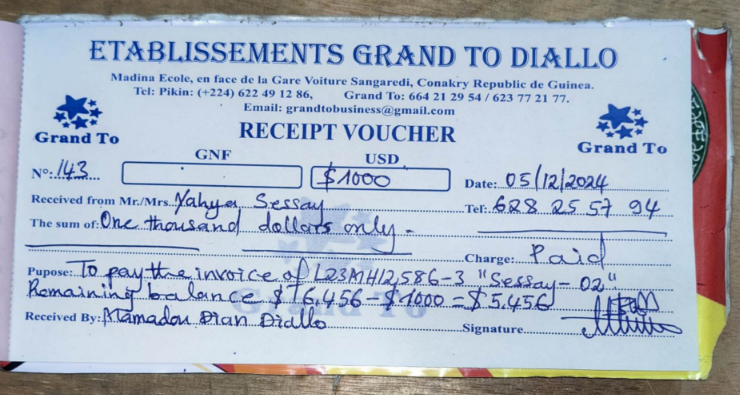 ETABLISSEMENTS GRAND TO DIALLO
Madina Ecole, en face de la Gare Voiture Sangaredi, Conakry Republic de Guinea.
Tel: Pikin: (+224) 622 49 12 86, Grand To: 664 21 29 54 / 623 77 21 77.
Email: grandtobusiness@gmail.com
Grand To RECEIPT VOUCHER Grand To
GNF USD
N°: 143 $1000 Date: 05/12/2024
Received from Mr./Mrs. Yahya Sessay Tel: 628 25 57 94
The sum of: One thousand dollars only -
Charge: Paid
Pupose: To pay the invoice of L23MH12586-3 "Sessay-02"
Remaining balance $ 6,456 - $1000 = $5,456
Received By: Mamadou Dian Diallo Signature